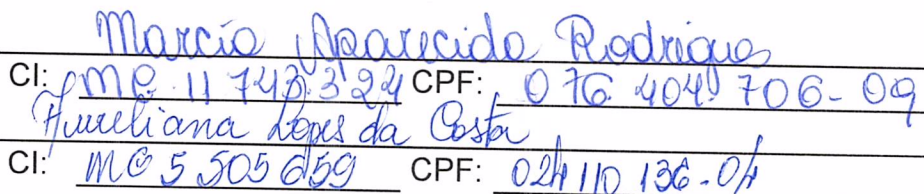 Marcio Aparecido Rodrigues
CI: MG. 11 743.324 CPF: 076 404 706-09
Aureliana Lopes da Costa
CI: MG 5 505 659 CPF: 024 110 136-04